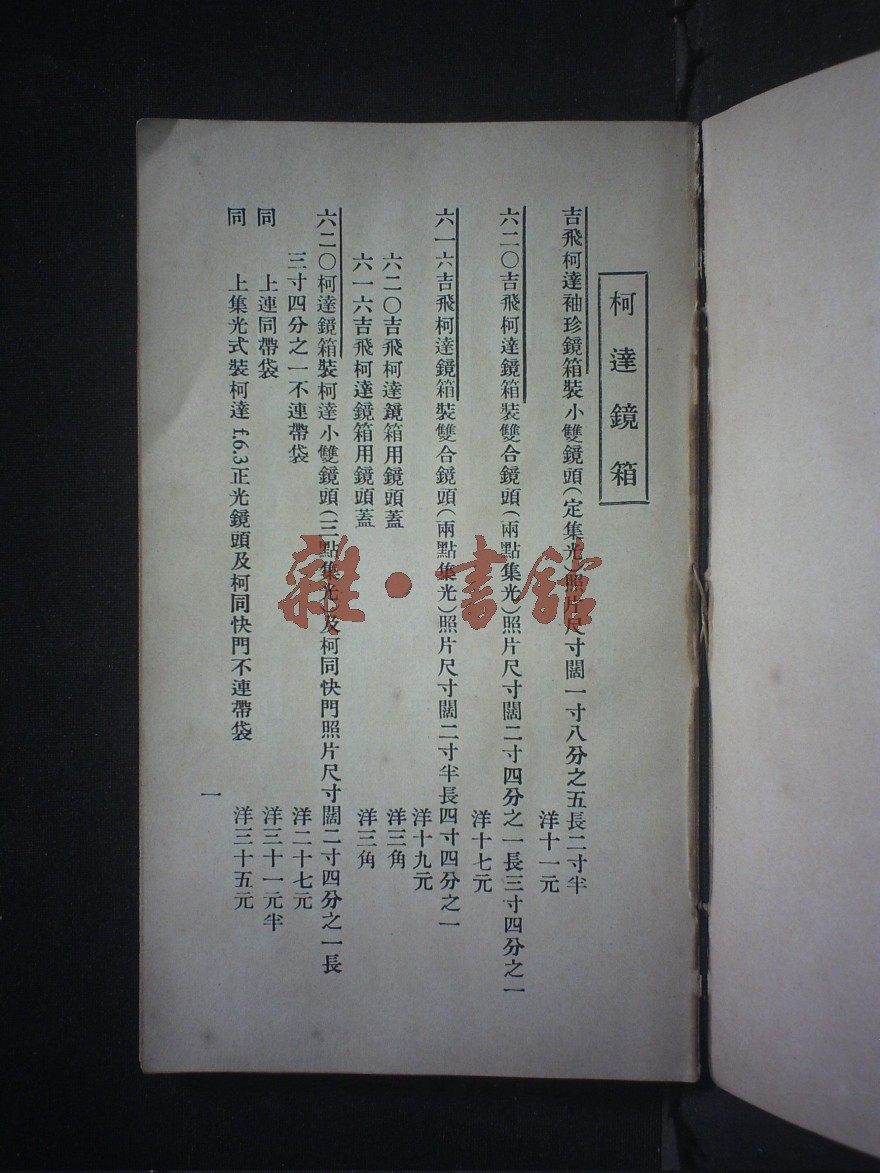 柯達鏡箱
吉飛柯達袖珍鏡箱裝小雙鏡頭(定集光)照片尺寸闊一寸八分之五長二寸半
洋十一元
六二〇吉飛柯達鏡箱裝雙合鏡頭(兩點集光)照片尺寸闊二寸四分之一長三寸四分之一
洋十七元
六一六吉飛柯達鏡箱裝雙合鏡頭(兩點集光)照片尺寸闊二寸半長四寸四分之一
洋十九元
六二〇吉飛柯達鏡箱用鏡頭蓋 洋三角
六一六吉飛柯達鏡箱用鏡頭蓋 洋三角
六二〇柯達鏡箱裝柯達小雙鏡頭(三點集光)及柯同快門照片尺寸闊二寸四分之一長
三寸四分之一不連帶袋 洋二十七元
同 上連同帶袋 洋三十一元半
同 上集光式裝柯達 f.6.3正光鏡頭及柯同快門不連帶袋 洋三十五元
一
雜·書館